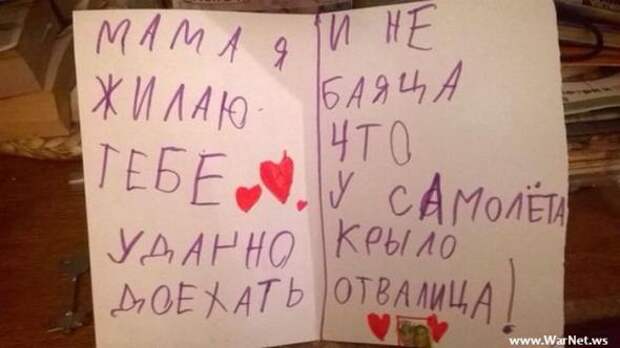 МАМА Я
ЖИЛАЮ
ТЕБЕ
УДАННО
ДОЕХАТЬ
И НЕ
БАЯЦА
ЧТО
У САМОЛЁТА
КРЫЛО
ОТВАЛИЦА!
www.WarNet.ws